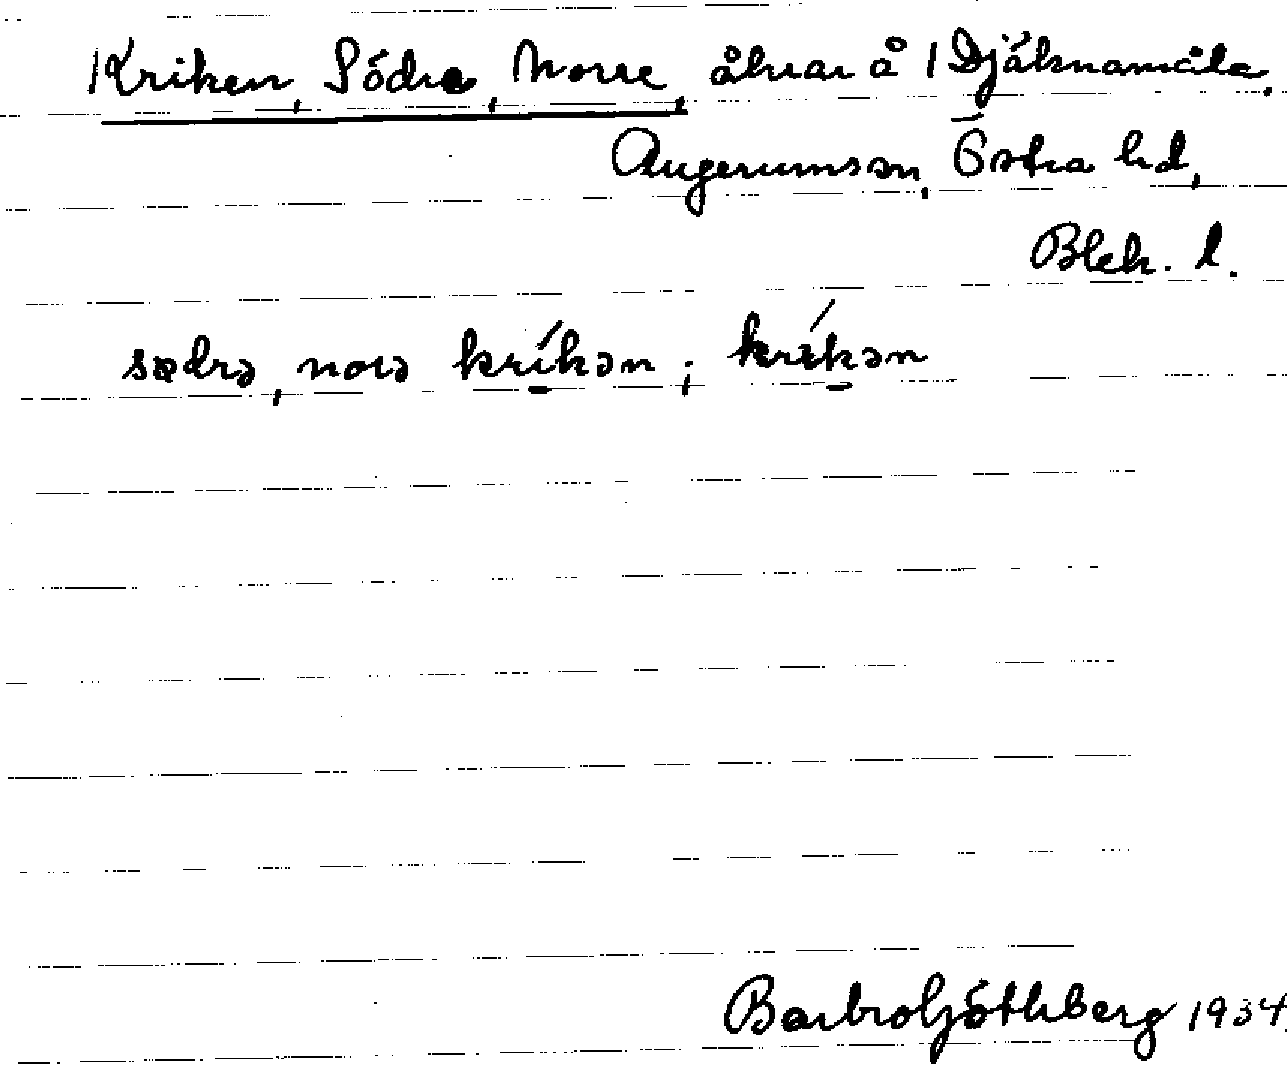 Kriken, Södra, Norre, åkrar å 1 Djäknamåla,
Augerums sn, Östra hd,
Blek. l.
sødrə, norə kríkən; krɩ́kən
Barbro Göthberg 1934.